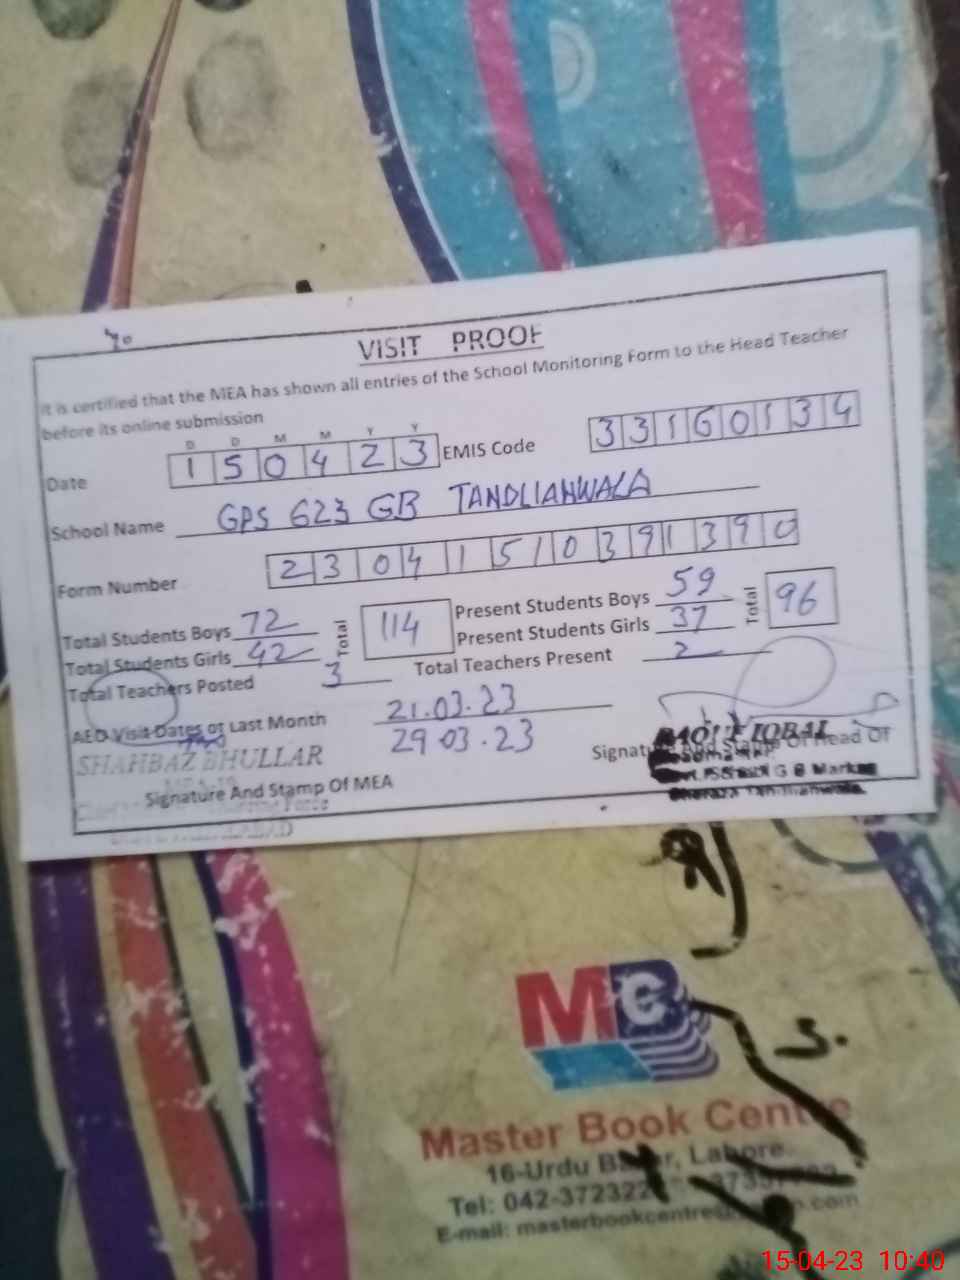 VISIT PROOF
It is certified that the MEA has shown all entries of the School Monitoring Form to the Head Teacher
before its online submission
D D M M Y Y
Date 1 5 0 4 2 3 EMIS Code 3 3 1 6 0 1 3 4
School Name GPS 623 GB TANDLIANWALA
Form Number 2 3 0 4 1 5 1 0 3 9 1 3 9 0
Total Students Boys 72 Total 114 Present Students Boys 59 Total 96
Total Students Girls 42 Present Students Girls 37
Total Teachers Posted 3 Total Teachers Present 2
AEO Visit Dates of Last Month 21.03.23
29 03.23
SHAHBAZ BHULLAR
Signature And Stamp Of MEA
Signature And Stamp Of Head Of
IQBAL
G B Markaz
MC
Master Book Centre
16-Urdu Bazar, Lahore.
Tel: 042-37232
E-mail: masterbookcentre
15-04-23 10:40